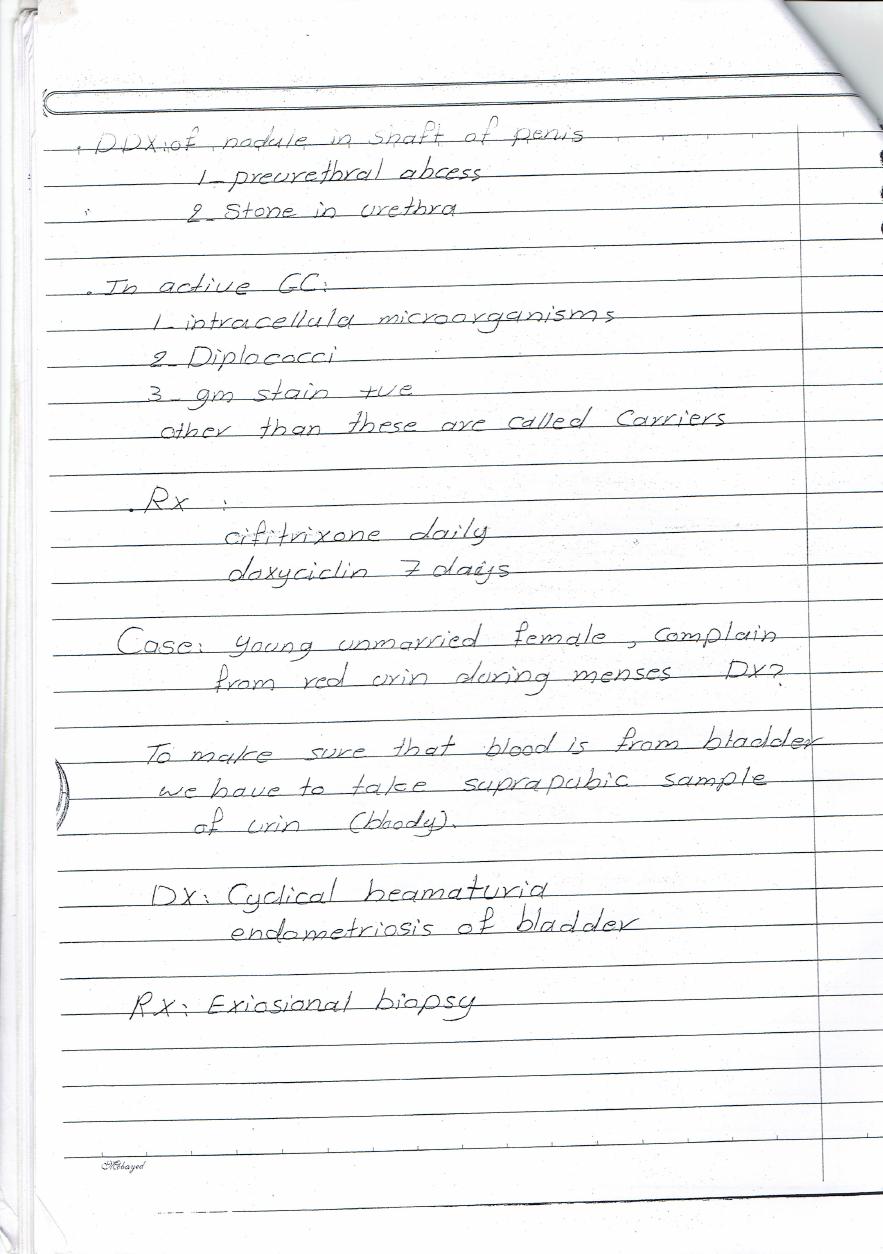 . DDX of nodule in shaft of penis
1_ preurethral abcess
2_ Stone in urethra
. In active GC:
1_ intracellula microorganisms
2_ Diplococci
3_ gm stain +ve
other than these are called Carriers
. Rx :
cifitrixone daily
doxyciclin 7 days
Case: young unmarried female , complain
from red urin during menses Dx?
To make sure that blood is from bladder
we have to take suprapubic sample
of urin (bloody).
DX: Cyclical heamaturia
endometriosis of bladder
RX: Exiosional biopsy
Mobayed